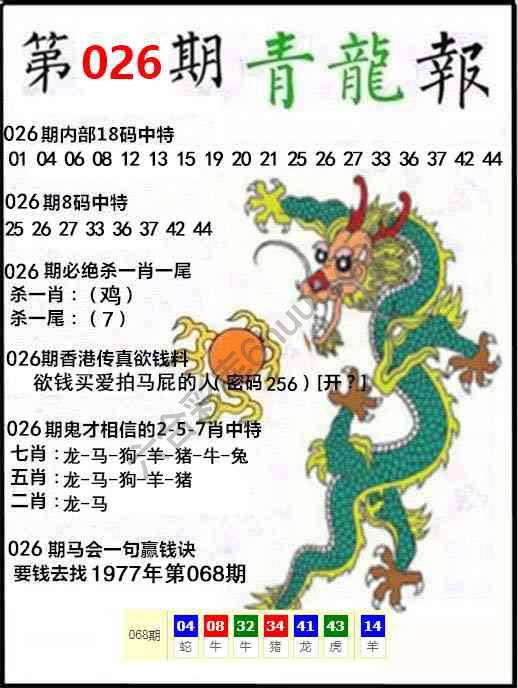 第026期青龍報
026期内部18码中特
01 04 06 08 12 13 15 19 20 21 25 26 27 33 36 37 42 44
026期8码中特
25 26 27 33 36 37 42 44
026 期必绝杀一肖一尾
杀一肖：（鸡）
杀一尾：（7）
026期香港传真欲钱料
欲钱买爱拍马屁的人（密码256）[开？]
026期鬼才相信的2-5-7肖中特
七肖：龙-马-狗-羊-猪-牛-兔
五肖：龙-马-狗-羊-猪
二肖：龙-马
026 期马会一句赢钱诀
要钱去找1977年第068期
068期 04 08 32 34 41 43 14
蛇 牛 牛 猪 龙 虎 羊